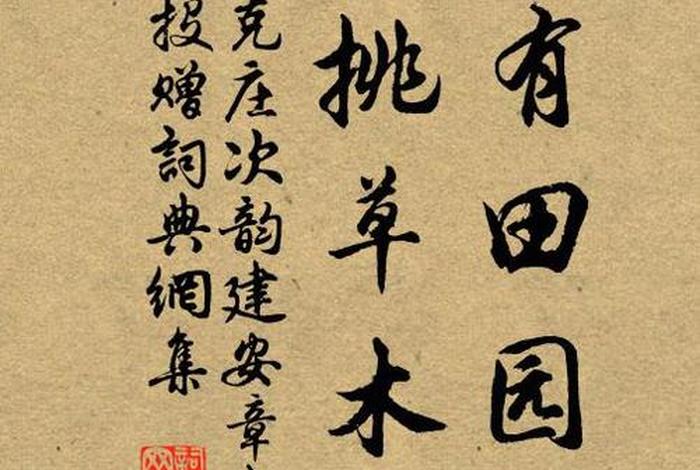 有田园
挑草木
克庄次韵建安章
投赠詞典網集
詞